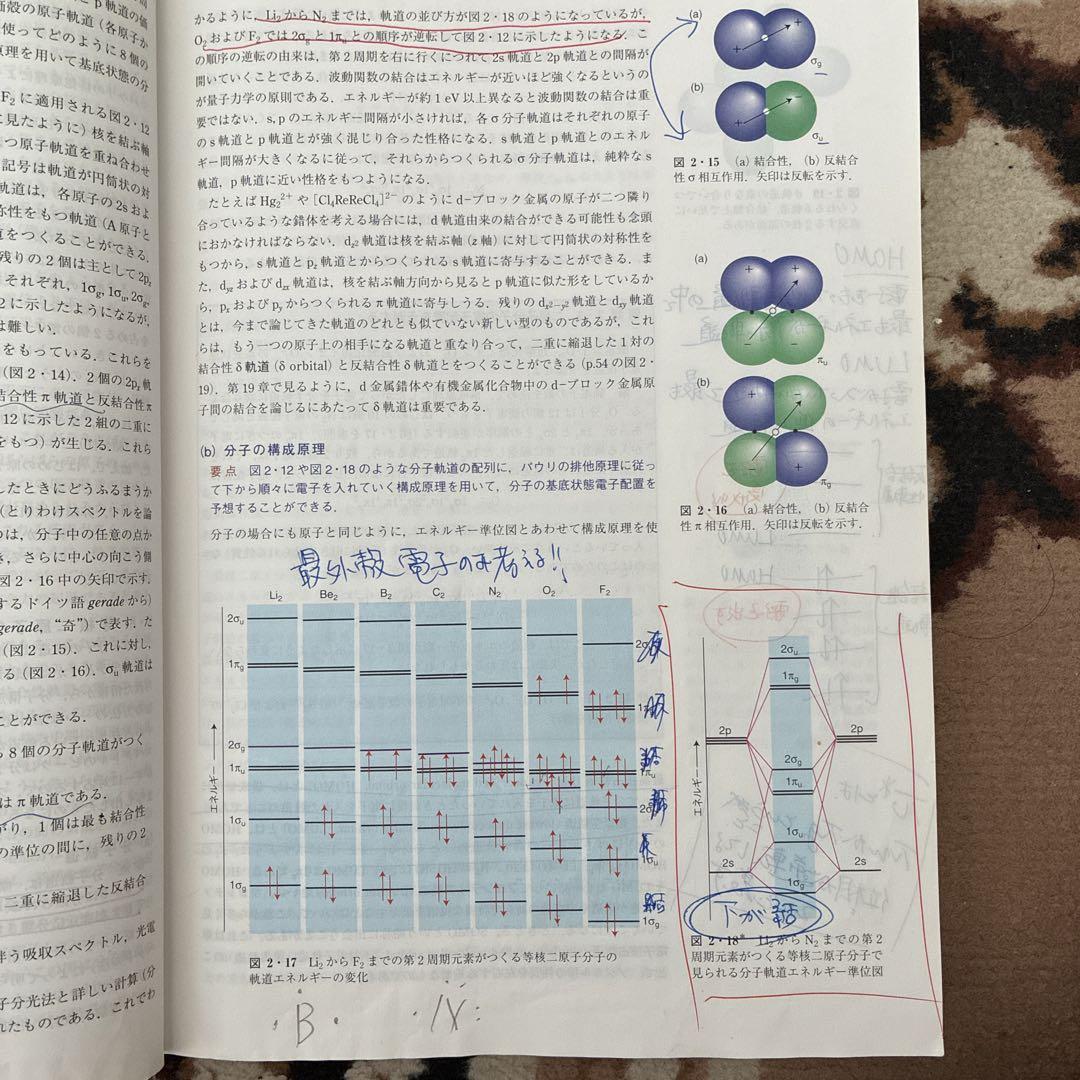 p 軌道の価
価殻の原子軌道（各原子か
使ってどのように8個の
原理を用いて基底状態の分
F₂ に適用される図2・12
に見たように）核を結ぶ軸
つ原子軌道を重ね合わせ
記号は軌道が円筒状の対
軌道は，各原子の2sおよ
称性をもつ軌道（A原子と
道をつくることができる．
残りの2個は主として2p_z
それぞれ，1σg，1σu，2σg，
2に示したようになるが，
は難しい．
をもっている．これらを
（図2・14）．2個の2p_x 軌
結合性π軌道と反結合性π
12に示した2組の二重に
をもつ）が生じる．これら
したときにどうふるまうか
（とりわけスペクトルを論
つは，分子中の任意の点か
き，さらに中心の向こう側
図2・16中の矢印で示す．
するドイツ語 gerade から）
gerade，“奇”）で表す．た
（図2・15）．これに対し，
る（図2・16）．σu 軌道は
ことができる．
ら8個の分子軌道がつく
はπ軌道である．
がり，1個は最も結合性
の準位の間に，残りの2
二重に縮退した反結合
伴う吸収スペクトル，光電
子分光法と詳しい計算（分
れたものである．これでわ
かるように，Li₂ から N₂ までは，軌道の並び方が図2・18のようになっているが，
O₂ および F₂ では 2σg と 1πu との順序が逆転して図2・12に示したようになる．こ
の順序の逆転の由来は，第2周期を右に行くにつれて2s軌道と2p軌道との間隔が
開いていくことである．波動関数の結合はエネルギーが近いほど強くなるというの
が量子力学の原則である．エネルギーが約1 eV 以上異なると波動関数の結合は重
要ではない．s, p のエネルギー間隔が小さければ，各σ分子軌道はそれぞれの原子
の s 軌道と p 軌道とが強く混じり合った性格になる．s 軌道と p 軌道とのエネル
ギー間隔が大きくなるに従って，それらからつくられるσ分子軌道は，純粋な s
軌道，p 軌道に近い性格をもつようになる．
たとえば Hg₂²⁺ や [Cl₄ReReCl₄]²⁻ のように d-ブロック金属の原子が二つ隣り
合っているような錯体を考える場合には，d 軌道由来の結合ができる可能性も念頭
におかなければならない．d_z² 軌道は核を結ぶ軸（z 軸）に対して円筒状の対称性を
もつから，s 軌道と p_z 軌道とからつくられるs 軌道に寄与することができる．ま
た，d_yz および d_zx 軌道は，核を結ぶ軸方向から見ると p 軌道に似た形をしているか
ら，p_x および p_y からつくられるπ軌道に寄与しうる．残りの d_x²−y² 軌道と d_xy 軌道
とは，今まで論じてきた軌道のどれとも似ていない新しい型のものであるが，これ
らは，もう一つの原子上の相手になる軌道と重なり合って，二重に縮退した1対の
結合性δ軌道（δ orbital）と反結合性δ軌道とをつくることができる（p.54の図2・
19）．第19章で見るように，d 金属錯体や有機金属化合物中の d-ブロック金属原
子間の結合を論じるにあたってδ軌道は重要である．
(b) 分子の構成原理
要点 図2・12や図2・18のような分子軌道の配列に，パウリの排他原理に従っ
て下から順々に電子を入れていく構成原理を用いて，分子の基底状態電子配置を
予想することができる．
分子の場合にも原子と同じように，エネルギー準位図とあわせて構成原理を使
最外殻電子のみ考える!!
Li₂ Be₂ B₂ C₂ N₂ O₂ F₂
2σu
2σu
1πg
2σg
1πu
1πu
1σu
1σu
1σg
1σg
エネルギー
図2・17 Li₂ から F₂ までの第2周期元素がつくる等核二原子分子の
軌道エネルギーの変化
B
(a)
+ +
σg
(b)
+ −
σu
図2・15 (a) 結合性，(b) 反結合
性σ相互作用．矢印は反転を示す．
(a)
+ +
− −
πu
(b)
+ −
− +
πg
図2・16 (a) 結合性，(b) 反結合
性π相互作用．矢印は反転を示す．
2σu
1πg
2p 2p
2σg
1πu
1σu
2s 2s
1σg
エネルギー
下が
図2・18* Li₂ から N₂ までの第2
周期元素がつくる等核二原子分子で
見られる分子軌道エネルギー準位図